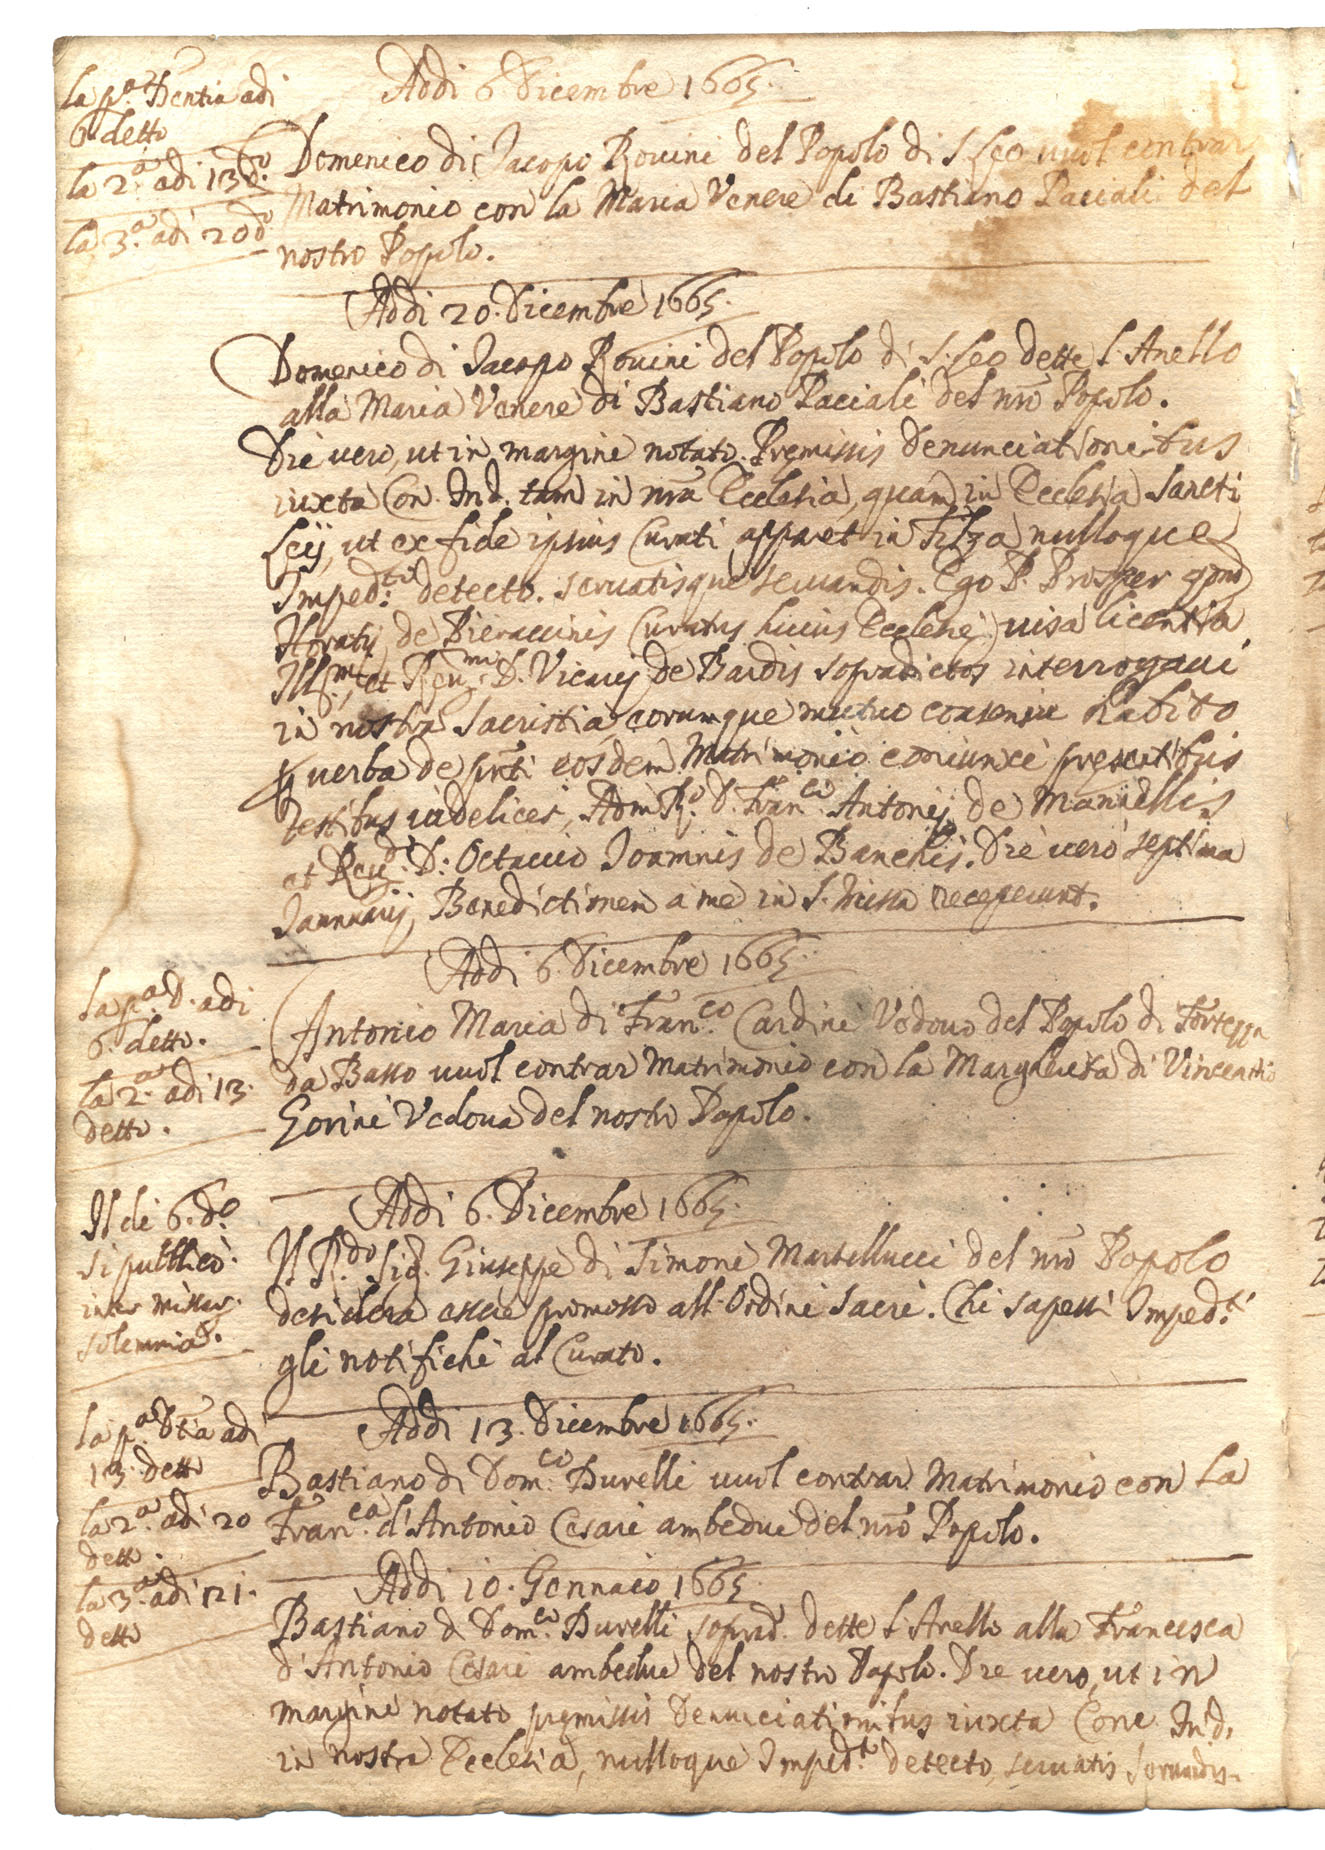 Addi 6 Dicembre 1665.
la p.a Dentia adi
6 detto
la 2.a adi 13 d.o
la 3.a adi 20 d.o
Domenico di Jacopo Rovini del Popolo di S. Leo vuol contrar
Matrimonio con la Maria Venere di Bastiano Paciali del
nostro Popolo.
Addi 20. Dicembre 1665.
Domenico di Jacopo Rovini del Popolo di S. Leo dette l'Anello
alla Maria Venere di Bastiano Paciali del nro Popolo.
Die vero, ut in margine notato. Premissis Denunciationibus
iuxta Con. Trid. tam in nra Ecclesia, quam in Ecclesia Sancti
Leij, ut ex fide ipsius Curati apparet in Filza nulloque
Imped.to detecto. servatisque servandis. Ego P. Prosper
Horatij de Pieraccinis Curatus huius Ecclesie, visa licentia
Ill.mi et R.mi D. Vicarij de Bardis sopradictos interrogavi
in nostra Sacristia, eorumque mutuo consensu habito
p verba de pnti eosdem Matrimonio coniunxi presentibus
testibus videlicet, Adm. R.do D. Fran.co Antonij de Mannellis
et Rev.do D. Octavio Joannis de Banchis. Die vero septima
Jannuarij, Benedictionem a me in S. Missa receperunt.
Addi 6. Dicembre 1665.
la p.a D. adi
6. detto.
la 2.a adi 13.
detto.
Antonio Maria di Fran.co Cardini Vedovo del Popolo di Fortezza
da Basso vuol contrar Matrimonio con la Margherita di Vincentio
Gorini Vedova del nostro Popolo.
Addi 6. Dicembre 1665.
Il di 6. d.o
si pubblicò
inter missar.
solemnia.
Il R.do Sig. Giuseppe di Simone Martellucci del nro Popolo
desidera essere promosso all'Ordini Sacri. Chi sapessi Imped.ti
gli notifichi al Curato.
Addi 13. Dicembre 1665.
la p.a Dtia adi
13. detto
la 2.a adi 20
detto.
la 3.a adi 21.
detto
Bastiano di Dom.co Burelli vuol contrar Matrimonio con la
Fran.ca d'Antonio Cesari ambedue del nro Popolo.
Addi 10. Gennaio 1665.
Bastiano d Dom.co Burelli soprad. dette l'Anello alla Francesca
d'Antonio Cesari ambedue del nostro Popolo. Die vero, ut in
margine notato premissis Denunciationibus iuxta Conc. Trid.
in nostra Ecclesia, nulloque Imped.to detecto, servatis servandis.